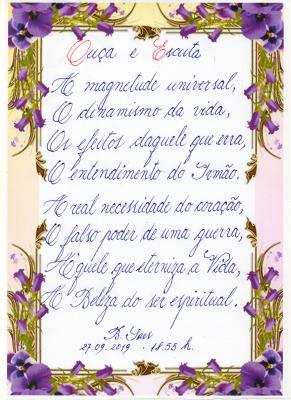 Ouça e Escuta
A magnetude universal,
O dinamismo da vida,
Os efeitos daquele que erra,
O entendimento do Irmão.
A real necessidade do coração,
O falso poder de uma guerra,
Aquele que eterniza a Vida,
A Beleza do ser espiritual.
27.09.2019 - 18.55 h.